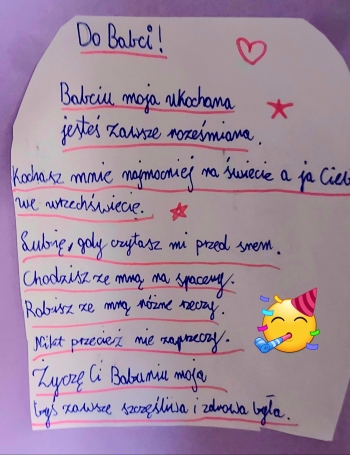 Do Babci!
Babciu moja ukochana
jesteś zawsze roześmiana.
Kochasz mnie najmocniej na świecie a ja Cieb
we wszechświecie.
Lubię, gdy czytasz mi przed snem.
Chodzisz ze mną na spacery.
Robisz ze mną różne rzeczy.
Nikt przecież nie zaprzeczy.
Życzę Ci Babuniu moja
byś zawsze szczęśliwa i zdrowa była.